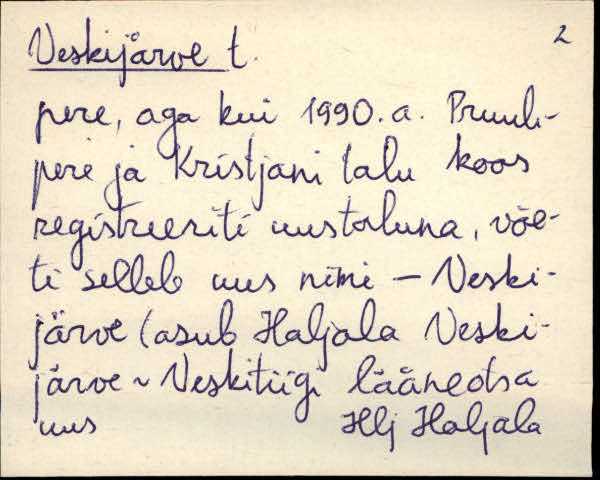 Veskijärve t. 2
pere, aga kui 1990.a. Pruuli-
pere ja Kristjani talu koos
registreeriti uustaluna, võe-
ti selleb uus nimi – Veski-
järve (asub Haljala Veski-
järve ~ Veskitiigi lääneotsa
uus Hlj Haljala